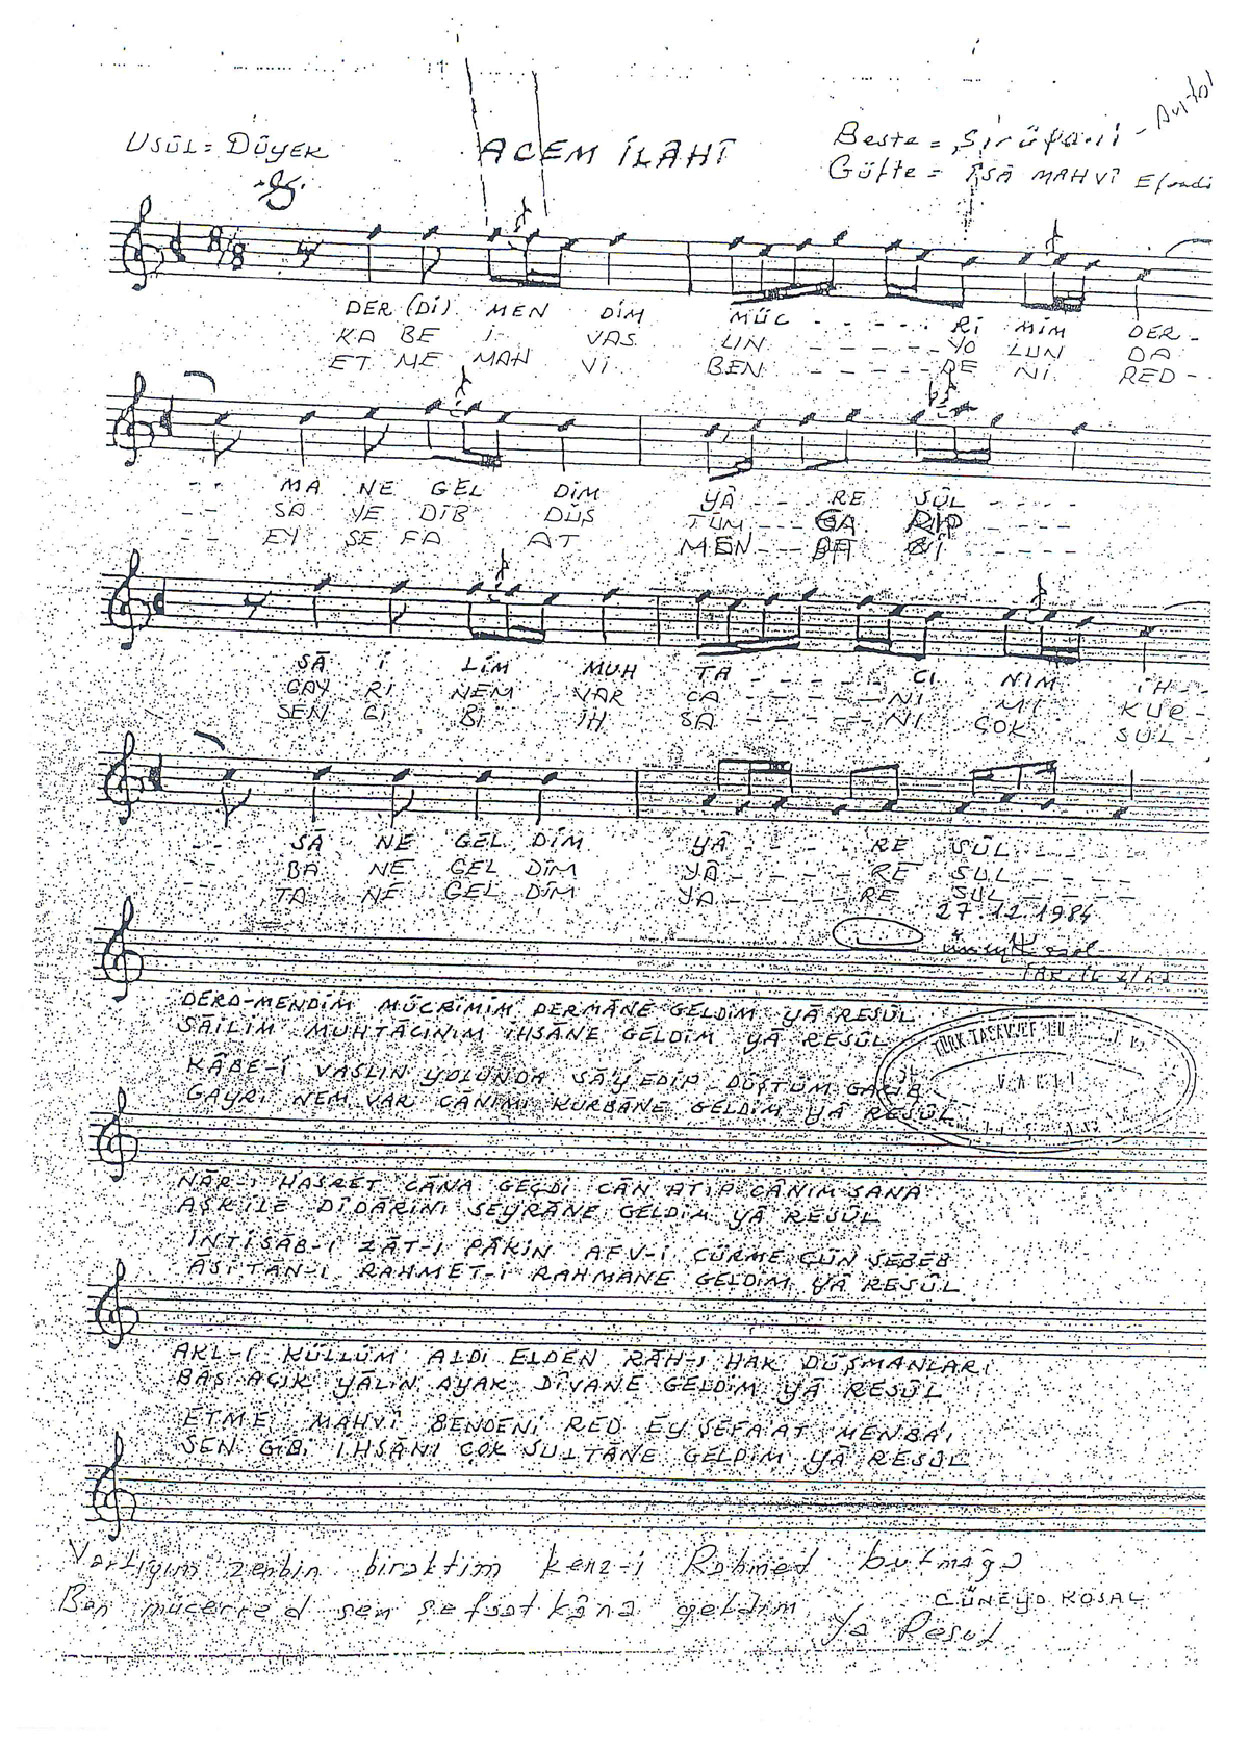 USÛL = DÜYEK
ACEM İLÂHÎ
Beste =
Güfte = İSÂ MAHVÎ Efendi
8/8
DER (Dİ) MEN DİM MÜC - - - - - Rİ MİM DER -
KA BE İ - VAS LIN - - - - - YO LUN DA
ET ME MAH Vİ BEN - - - - - DE Nİ RED - -
- - MA NE GEL DİM YÂ - - - RE SÛL - - - -
- - SA YE DİB DÜŞ TÜM - - - GA RİP - - - -
- - EY ŞE FA AT MEN - - - BA Bİ - - - -
SÂ İ LİM MUH TA - - - - - CI NIM İH - -
GAY RI NEM VAR CA - - - - - NI MI KUR -
SEN Gİ Bİ İH SA - - - - - NI ÇOK SUL -
- - SÂ NE GEL DİM YÂ - - - - RE SÛL - - - -
- - BA NE GEL DİM YÂ - - - - RE SUL - - - -
TA NE GEL DİM YA - - - - RE SUL - - - -
27.12.1984
DERD-MENDİM MÜCRİMİM DERMÂNE GELDİM YÂ RESÛL
SÂİLİM MUHTÂCINIM İHSÂNE GELDİM YÂ RESÛL
KÂBE-İ VASLIN YOLUNDA SÂY EDİP DÜŞTÜM GARİB
GAYRI NEM VAR CÂNIMI KURBÂNE GELDİM YÂ RESÛL
TÜRK TASAVVUF
VAKFI
NÂR-I HASRET CÂNA GEÇDİ CÂN ATIP CÂNIM SANA
AŞK İLE DÎDÂRINI SEYRÂNE GELDİM YÂ RESÛL
İNTİSÂB-I ZÂT-I PÂKİN AFV-I CÜRME ÇÜN SEBEB
ÂSİTÂN-I RAHMET-İ RAHMANE GELDİM YÂ RESÛL
AKL-I KÜLLÜM ALDI ELDEN RÂH-I HAK DÜŞMANLARI
BAŞ AÇIK YALIN AYAK DÎVANE GELDİM YÂ RESÛL
ETME MAHVÎ BENDENİ RED EY ŞEFAAT MENBA'I
SEN GİBİ İHSÂNI ÇOK SULTÂNE GELDİM YÂ RESÛL
Varlığım zenbin bıraktım kenz-i Rahmed bulmağa
Ben mücerred sen şefaat kâna geldim
CÜNEYD KOSAL
Ya Resul